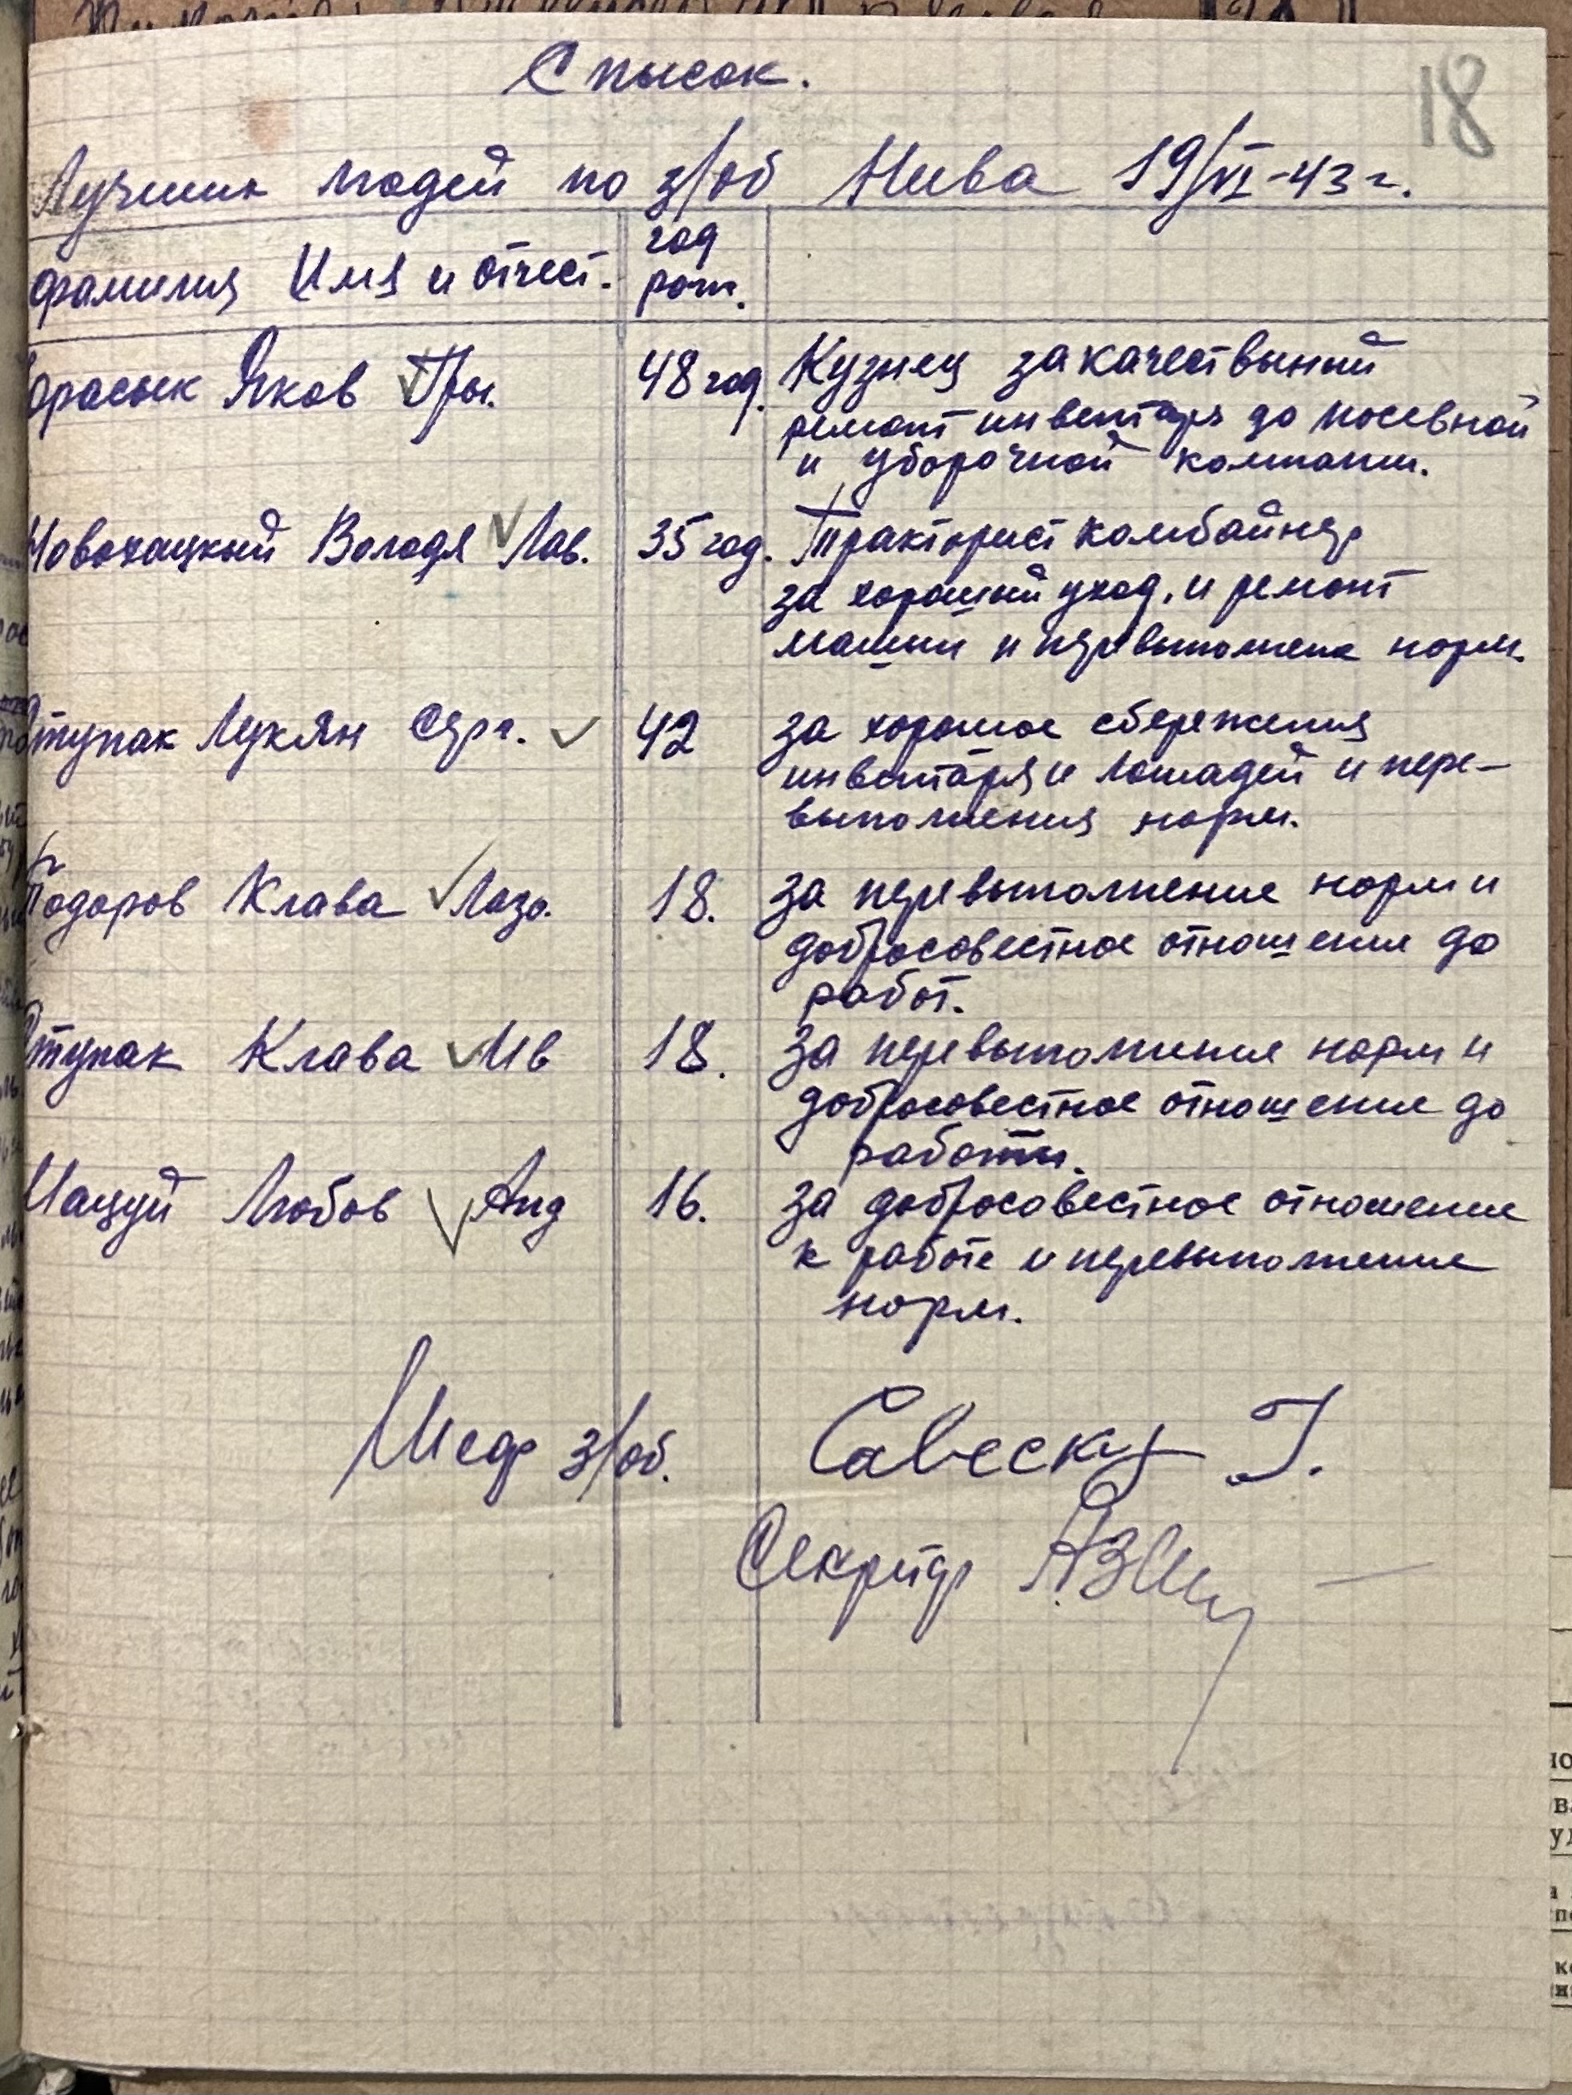 18
Спысок.
Лучших людей по з/об Нива 19/VI-43 г.
фамилия Имя и отчест. год рож.
Яков Гры. 48 год. Кузнец за качествыный
ремонт инвентаря до посевной
и уборочной компании.
Новохацкый Володя Лав. 35 год. Тракторист комбайнер
за хороший уход, и ремонт
машын и перевыполнене норм.
Ступак Лукян Серг. 42 за хорошое сбережения
инвентаря и лошадей и пере-
выполнения норм.
Тодоров Клава Лазо. 18. за перевыполнение норм и
добросовестное отношение до
работ.
Ступак Клава Ив 18. за перевыполнение норм и
добросовестное отношение до
работы.
Мацуй Любов Анд 16. за добросовестное отношение
к работе и перевыполнение
норм.
Шеф з/об. Савеску Г.
Секритар